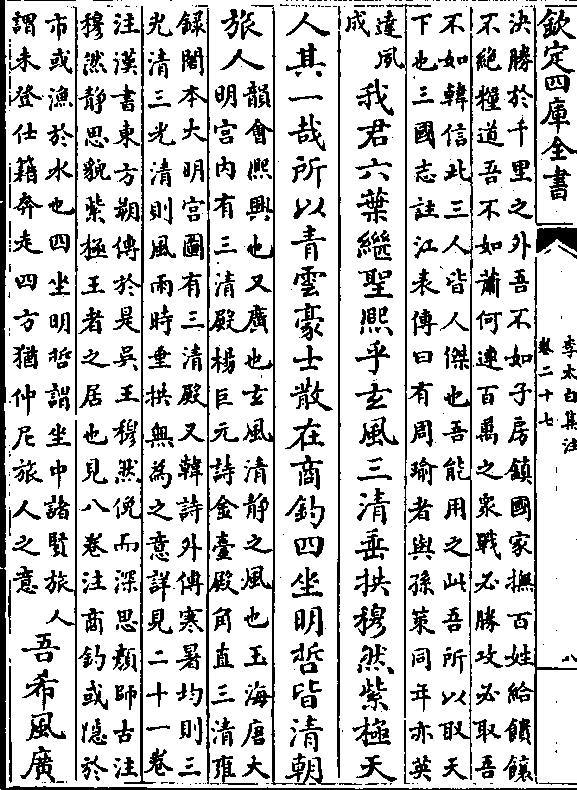 欽定四庫全書
李太白集注
卷二十七
八
決勝於千里之外吾不如子房鎮國家撫百姓給餽饟
不絶糧道吾不如蕭何連百萬之衆戰必勝攻必取吾
不如韓信此三人皆人傑也吾能用之此吾所以取天
下也三國志註江表傳曰有周瑜者與孫策同年亦英
達夙
成
我君六葉繼聖熙乎玄風三清垂拱穆然紫極天
人其一哉所以青雲豪士散在商釣四坐明哲皆清朝
旅人
韻會熙興也又廣也玄風清静之風也玉海唐大
明宫内有三清殿楊巨元詩金臺殿角直三清雍
録閣本大明宫圖有三清殿又韓詩外傳寒暑均則三
光清三光清則風雨時垂拱無為之意詳見二十一卷
注漢書東方朔傳於是吳王穆然俛而深思顔師古注
穆然静思貌紫極王者之居也見八卷注商釣或隱於
市或漁於水也四坐明哲謂坐中諸賢旅人
謂未登仕籍奔走四方猶仲尼旅人之意
吾希風廣